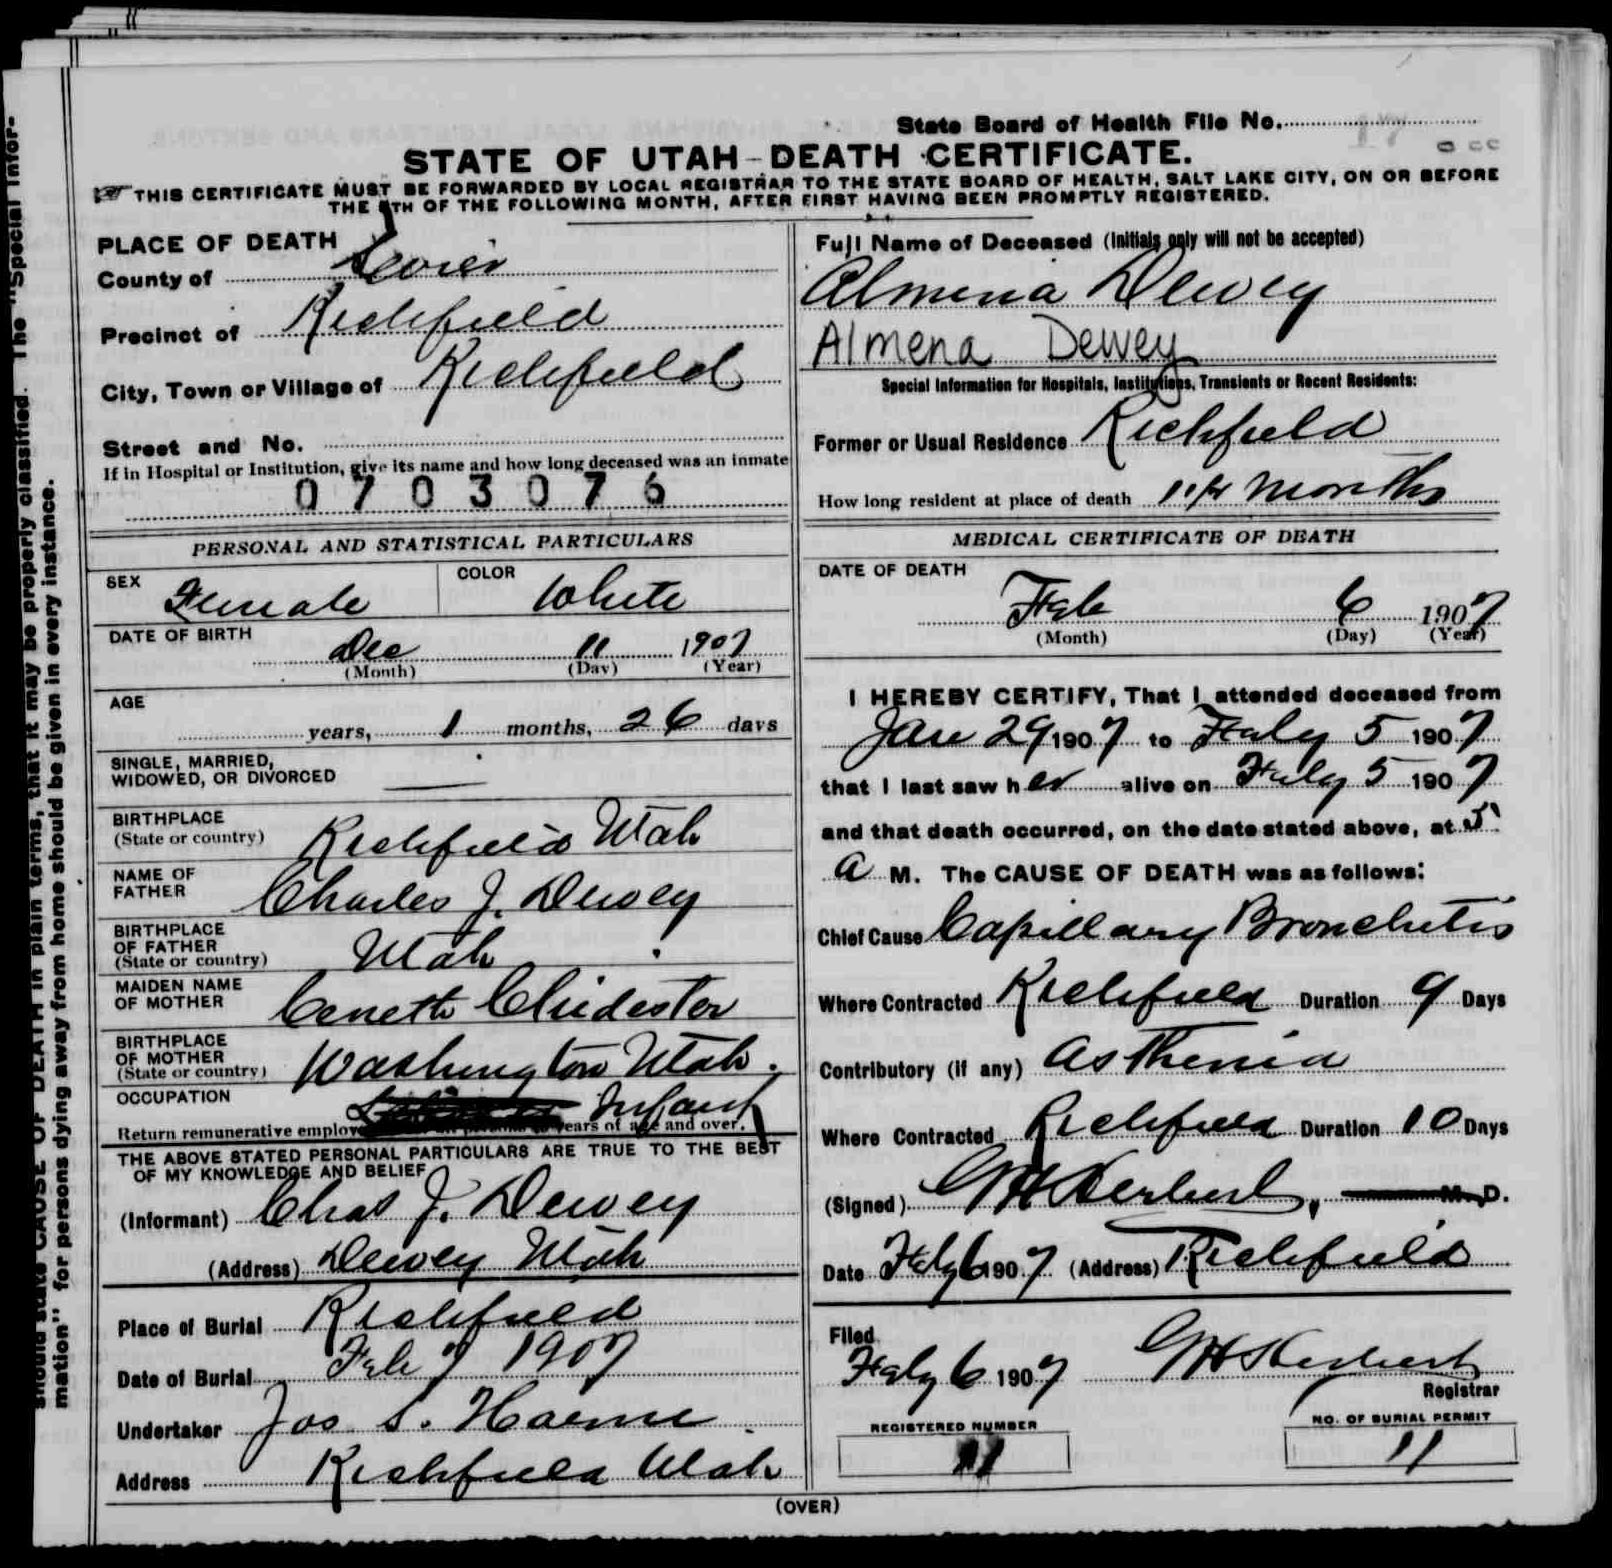 State Board of Health File No.
STATE OF UTAH - DEATH CERTIFICATE.
THIS CERTIFICATE MUST BE FORWARDED BY LOCAL REGISTRAR TO THE STATE BOARD OF HEALTH, SALT LAKE CITY, ON OR BEFORE
THE 5TH OF THE FOLLOWING MONTH, AFTER FIRST HAVING BEEN PROMPTLY REGISTERED.
PLACE OF DEATH
County of Sevier
Precinct of Richfield
City, Town or Village of Richfield
Street and No.
If in Hospital or Institution, give its name and how long deceased was an inmate
0703076
Full Name of Deceased (Initials only will not be accepted)
Almena Dewey
Almena Dewey
Special Information for Hospitals, Institutions, Transients or Recent Residents:
Former or Usual Residence Richfield
How long resident at place of death months
PERSONAL AND STATISTICAL PARTICULARS
SEX Female COLOR White
DATE OF BIRTH Dec 11 1907
(Month) (Day) (Year)
AGE
years, 1 months, 26 days
SINGLE, MARRIED,
WIDOWED, OR DIVORCED
BIRTHPLACE
(State or country) Richfield Utah
NAME OF
FATHER Charles J. Dewey
BIRTHPLACE
OF FATHER
(State or country) Utah
MAIDEN NAME
OF MOTHER Ceneth Chidester
BIRTHPLACE
OF MOTHER
(State or country) Washington Utah.
OCCUPATION Infant
Return remunerative employ years of age and over.
THE ABOVE STATED PERSONAL PARTICULARS ARE TRUE TO THE BEST
OF MY KNOWLEDGE AND BELIEF
(Informant) Chas J. Dewey
(Address) Dewey Utah
Place of Burial Richfield
Date of Burial Feb 7 1907
Undertaker Jos S. Horne
Address Richfield Utah
MEDICAL CERTIFICATE OF DEATH
DATE OF DEATH
Feb 6 1907
(Month) (Day) (Year)
I HEREBY CERTIFY, That I attended deceased from
Jan 29 1907 to Feby 5 1907
that I last saw her alive on Feby 5 1907
and that death occurred, on the date stated above, at 5
a M. The CAUSE OF DEATH was as follows:
Chief Cause Capillary Bronchitis
Where Contracted Richfield Duration 9 Days
Contributory (if any) Asthenia
Where Contracted Richfield Duration 10 Days
(Signed) GH Herbert, M. D.
Date Feby 6 1907 (Address) Richfield
Filed
Feby 6 1907 GH Herbert
Registrar
REGISTERED NUMBER
11
NO. OF BURIAL PERMIT
11
(OVER)
should state CAUSE OF DEATH in plain terms, that it may be properly classified. The "Special Infor-
mation" for persons dying away from home should be given in every instance.